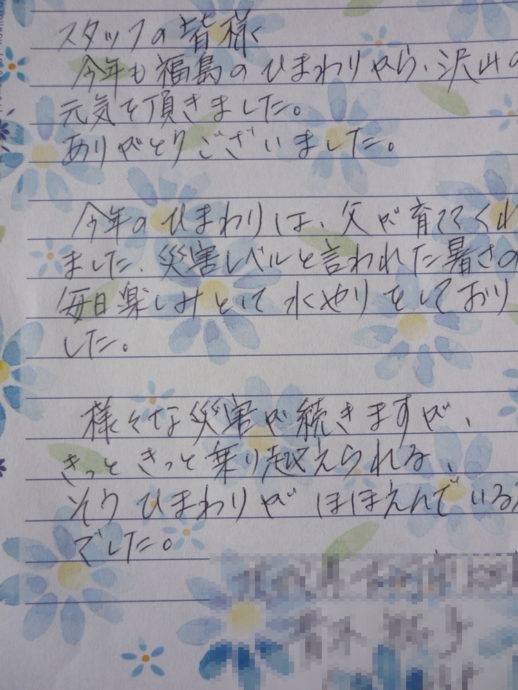 スタッフの皆様へ
今年も福島のひまわりから、沢山の
元気を頂きました。
ありがとうございました。
今年のひまわりは、父が育ててくれ
ました。災害レベルと言われた暑さの
毎日楽しみとして水やりをしており
した。
様々な災害が続きますが、
きっときっと乗り越えられる、
そうひまわりがほほえんでいる
でした。